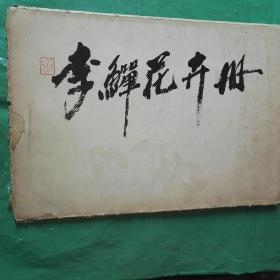 李鱓花卉册